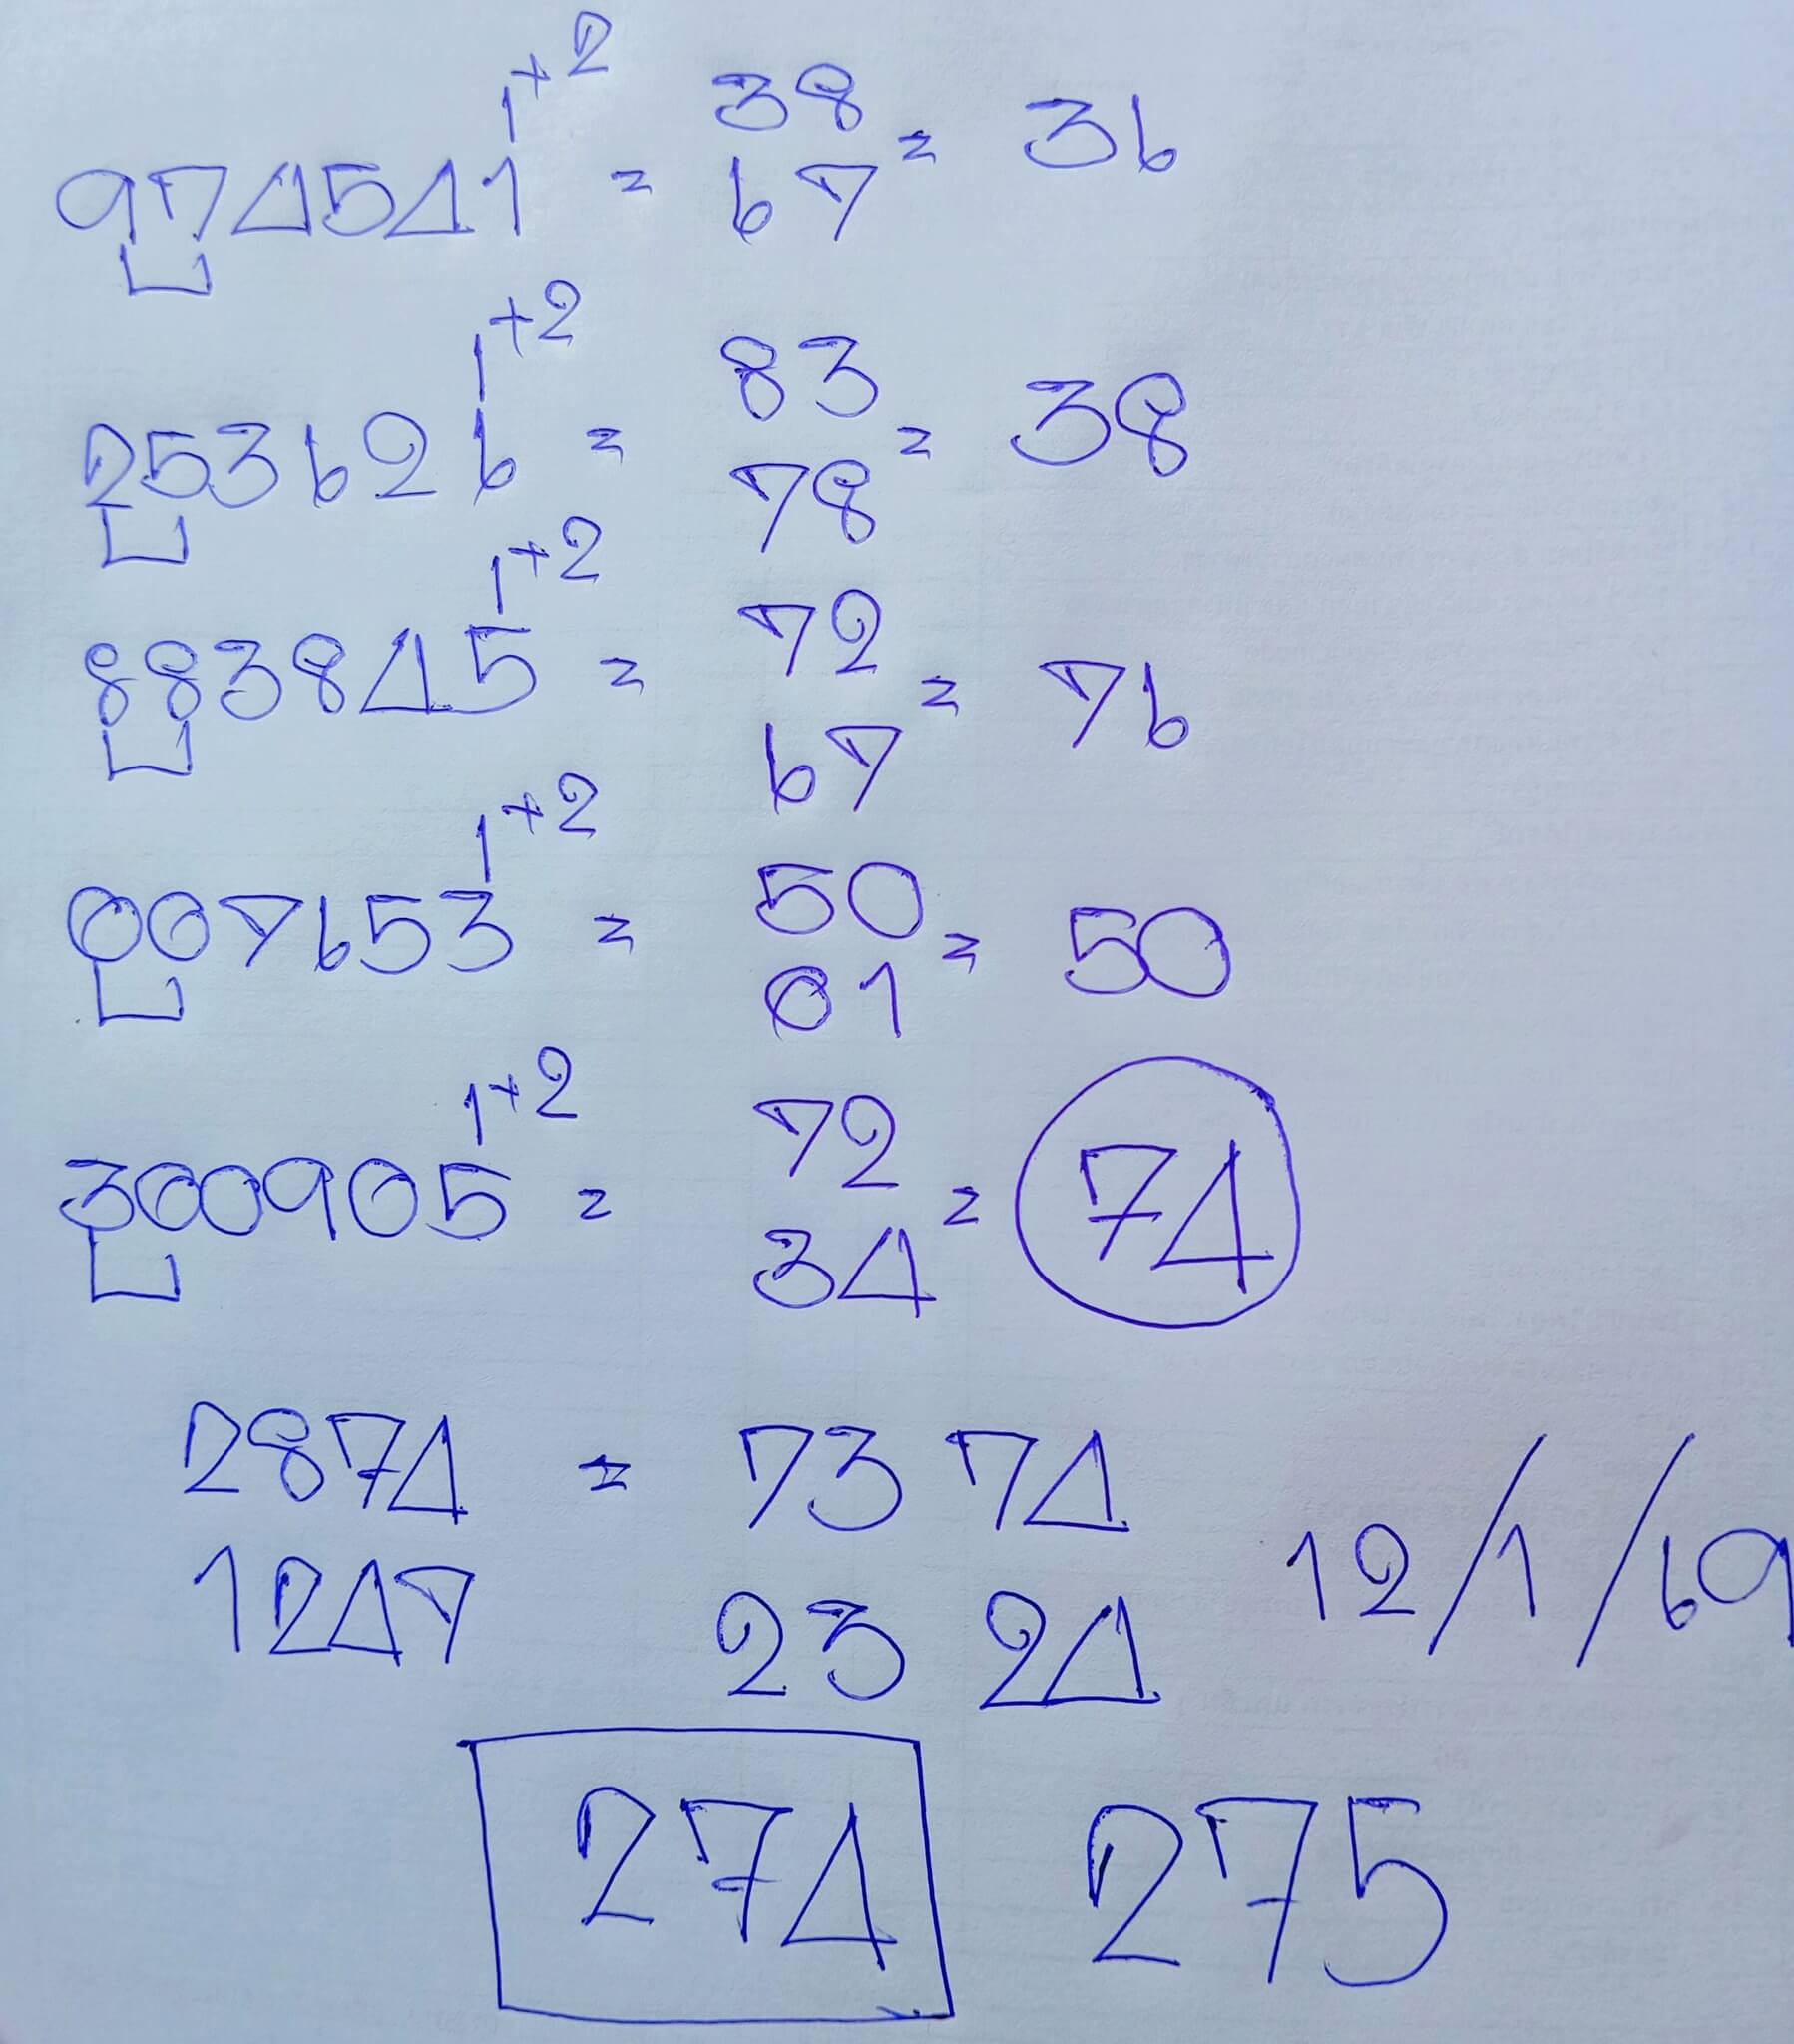 1+2
974541 = 38 = 36
67
1+2
253626 = 83 = 38
78
1+2
883845 = 72 = 76
67
1+2
007653 = 50 = 50
01
1+2
300905 = 72 = 74
34
2874 = 73 74
1247 23 24 12/1/69
274 275